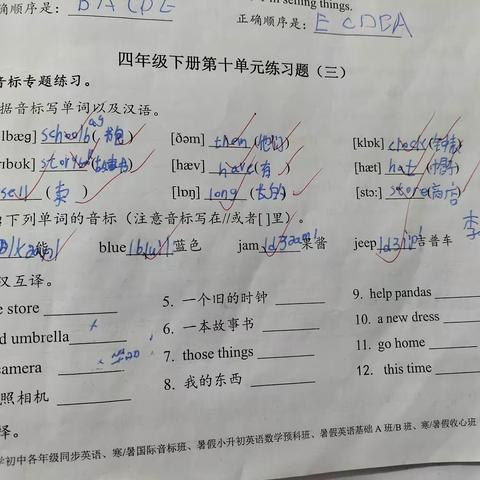 确顺序是: BACDE
in selling things.
正确顺序是: ECDBA
四年级下册第十单元练习题（三）
音标专题练习。
据音标写单词以及汉语。
lbæg] schoolbag (书包) [ðəm] them (他们) [klɒk] clock (时钟)
rɪbʊk] storyb (故事书) [hæv] have (有) [hæt] hat (帽子)
sell (卖) [lɒŋ] long (长的) [stɔ:] store (商店)
下列单词的音标（注意音标写在//或者[ ]里）。
能 blue /blu:/ 蓝色 jam /dʒæm/ 果酱 jeep /dʒi:p/ 吉普车
汉互译。
e store 5. 一个旧的时钟 9. help pandas
d umbrella 6. 一本故事书 10. a new dress
camera 7. those things 11. go home
照相机 8. 我的东西 12. this time
择。
学初中各年级同步英语、寒/暑国际音标班、暑假小升初英语数学预科班、暑假英语基础 A 班/B 班、寒/暑假收心班